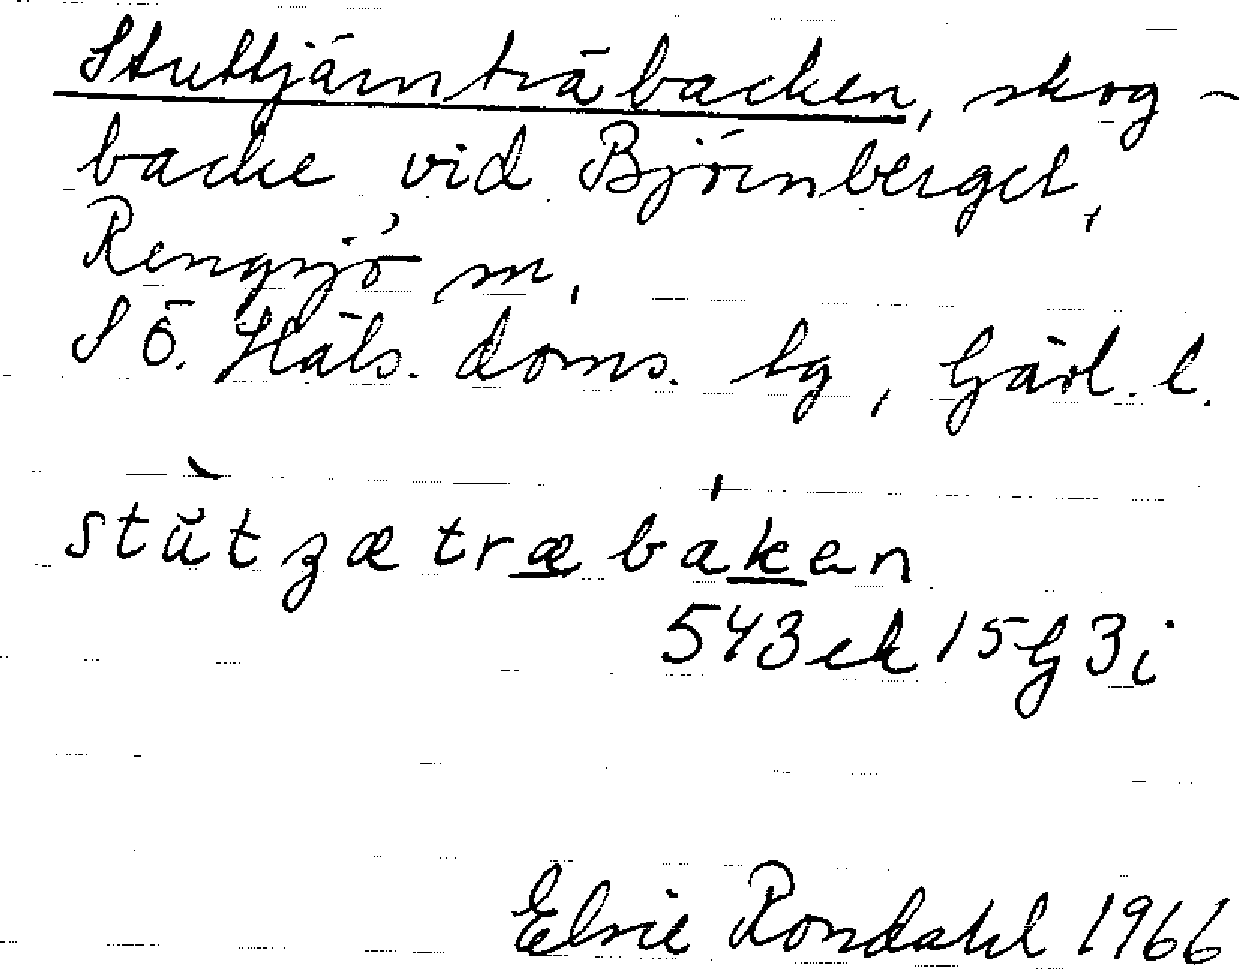 Stuttjärnträbacken, skog-
backe vid Björnberget,
Rengsjö sn,
SÖ. Häls. doms. tg, Gävl. l.
stùtzætræbaken
543ek 15G3i
Elsie Rondahl 1966